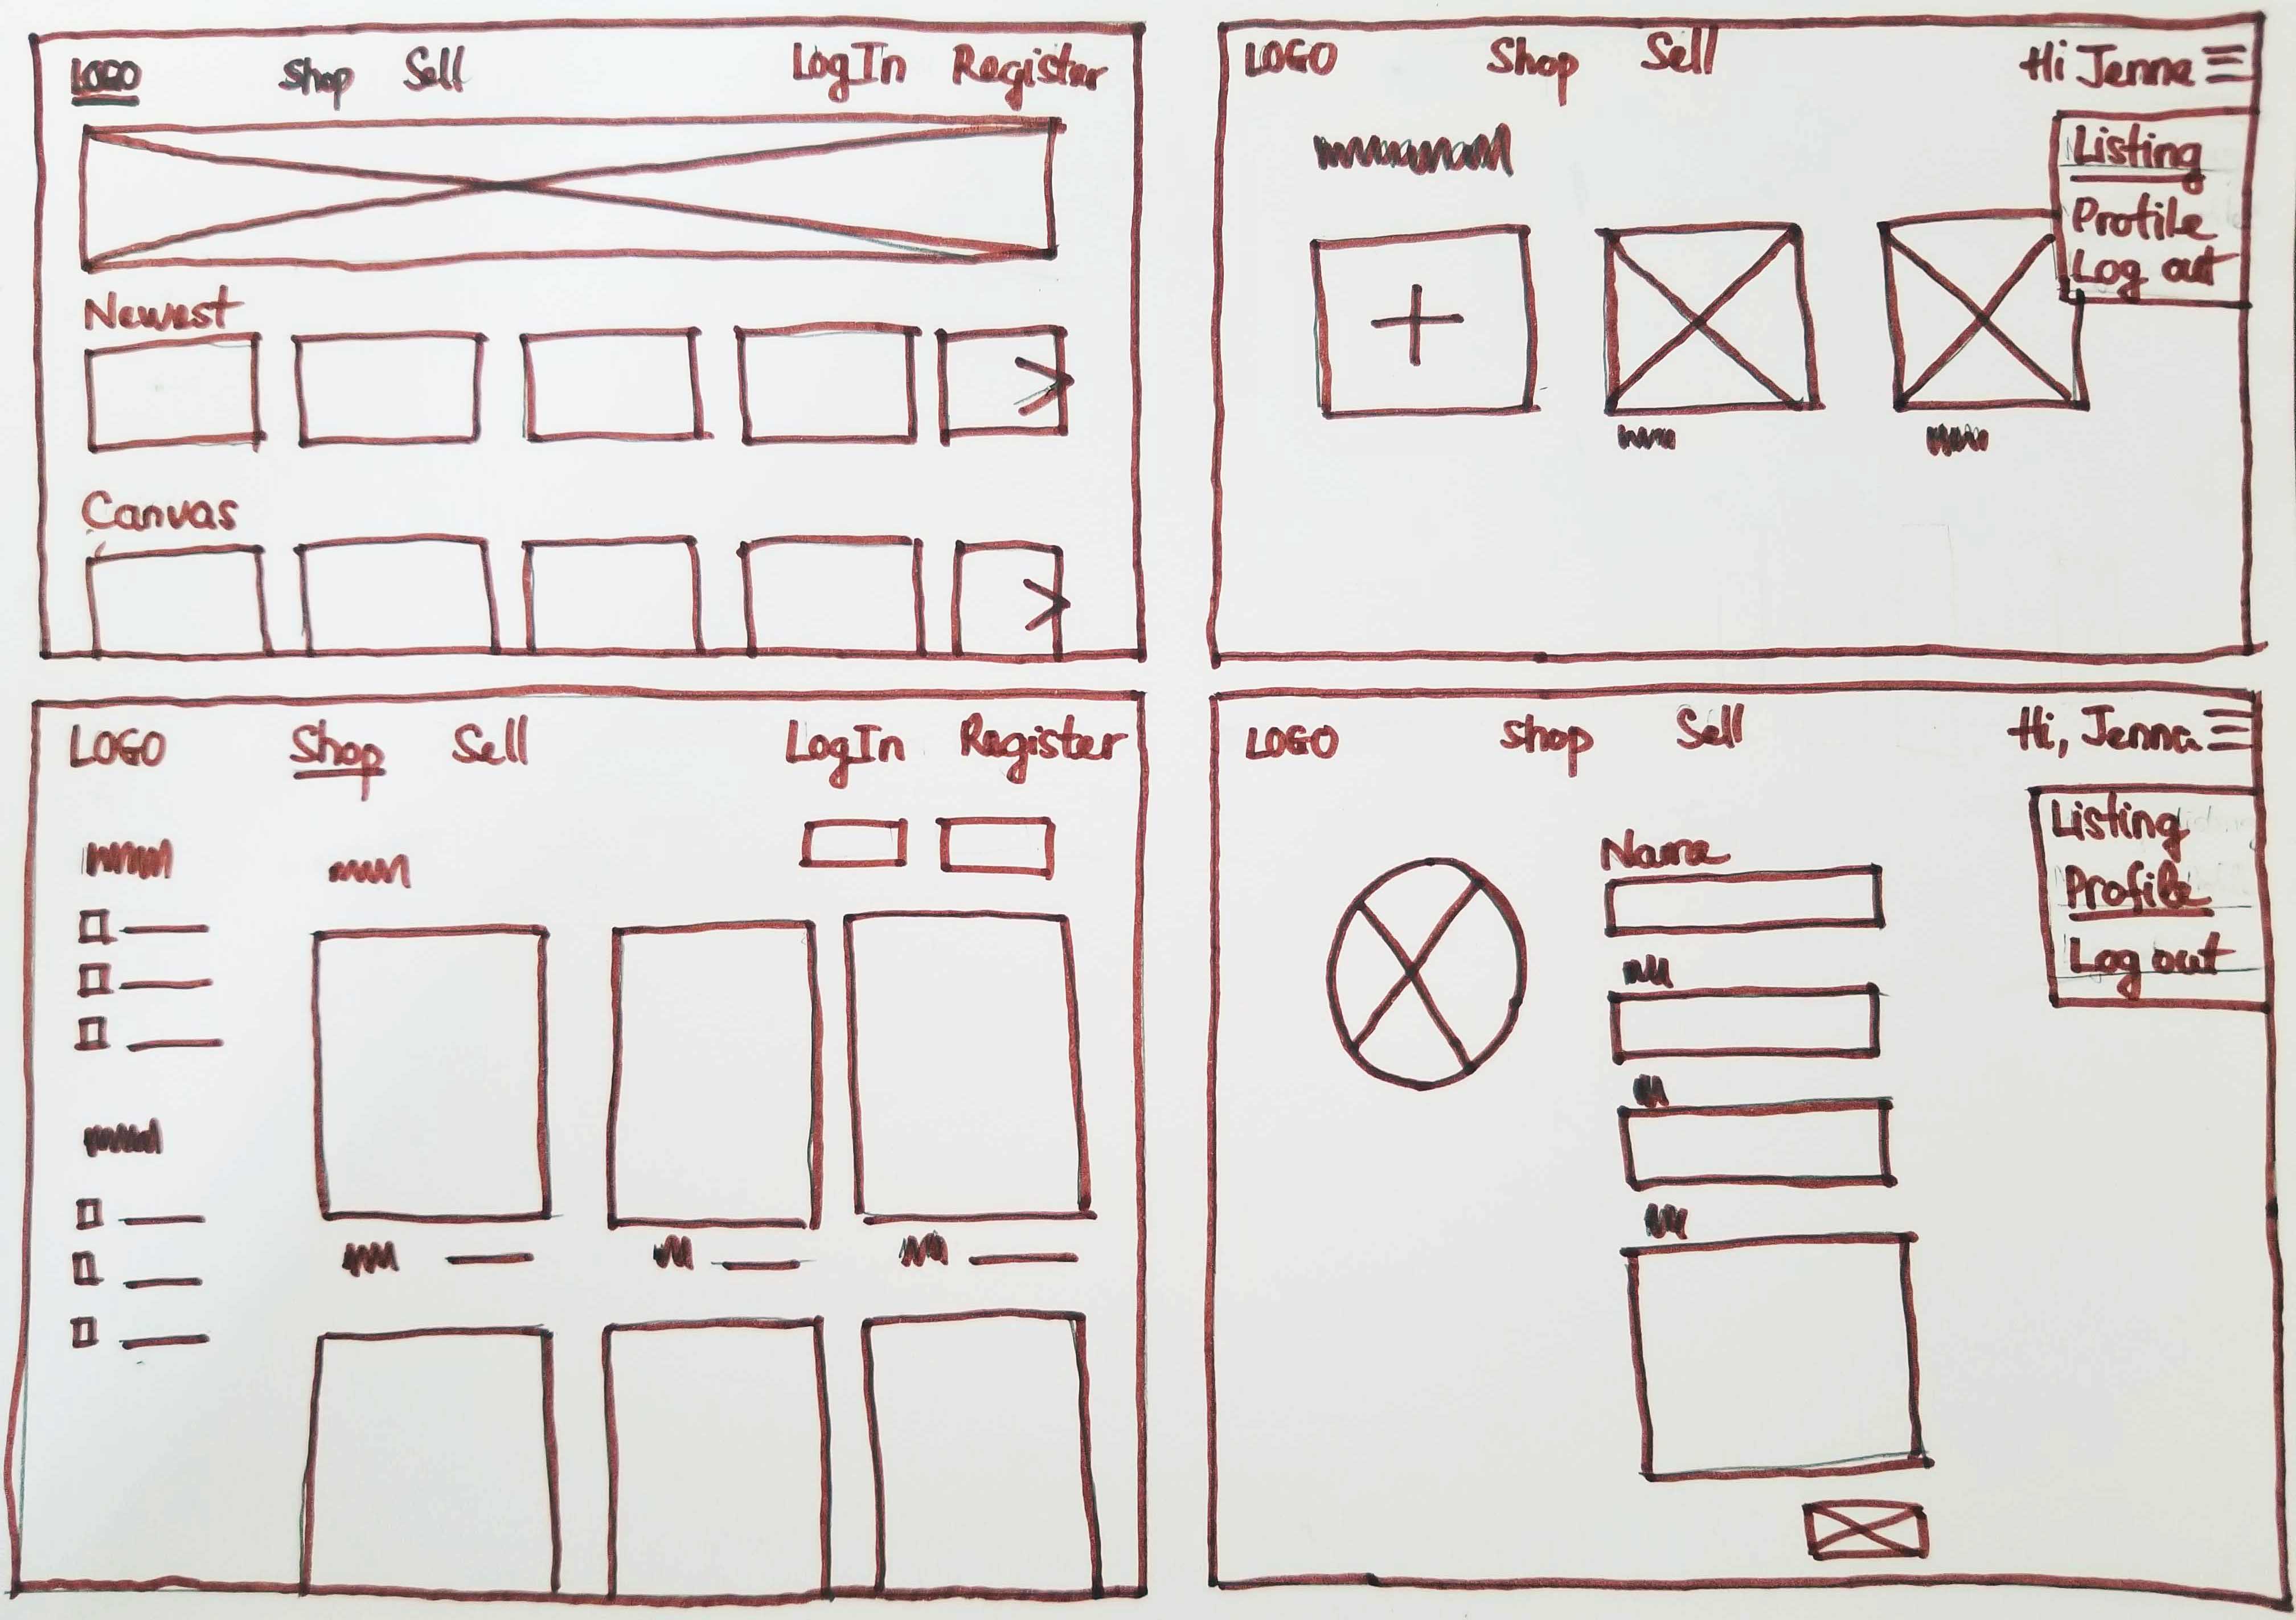 LOGO Shop Sell LogIn Register
Newest
Canvas
LOGO Shop Sell Hi Jenna
Listing
Profile
Log out
LOGO Shop Sell LogIn Register
LOGO Shop Sell Hi, Jenna
Listing
Profile
Log out
Name